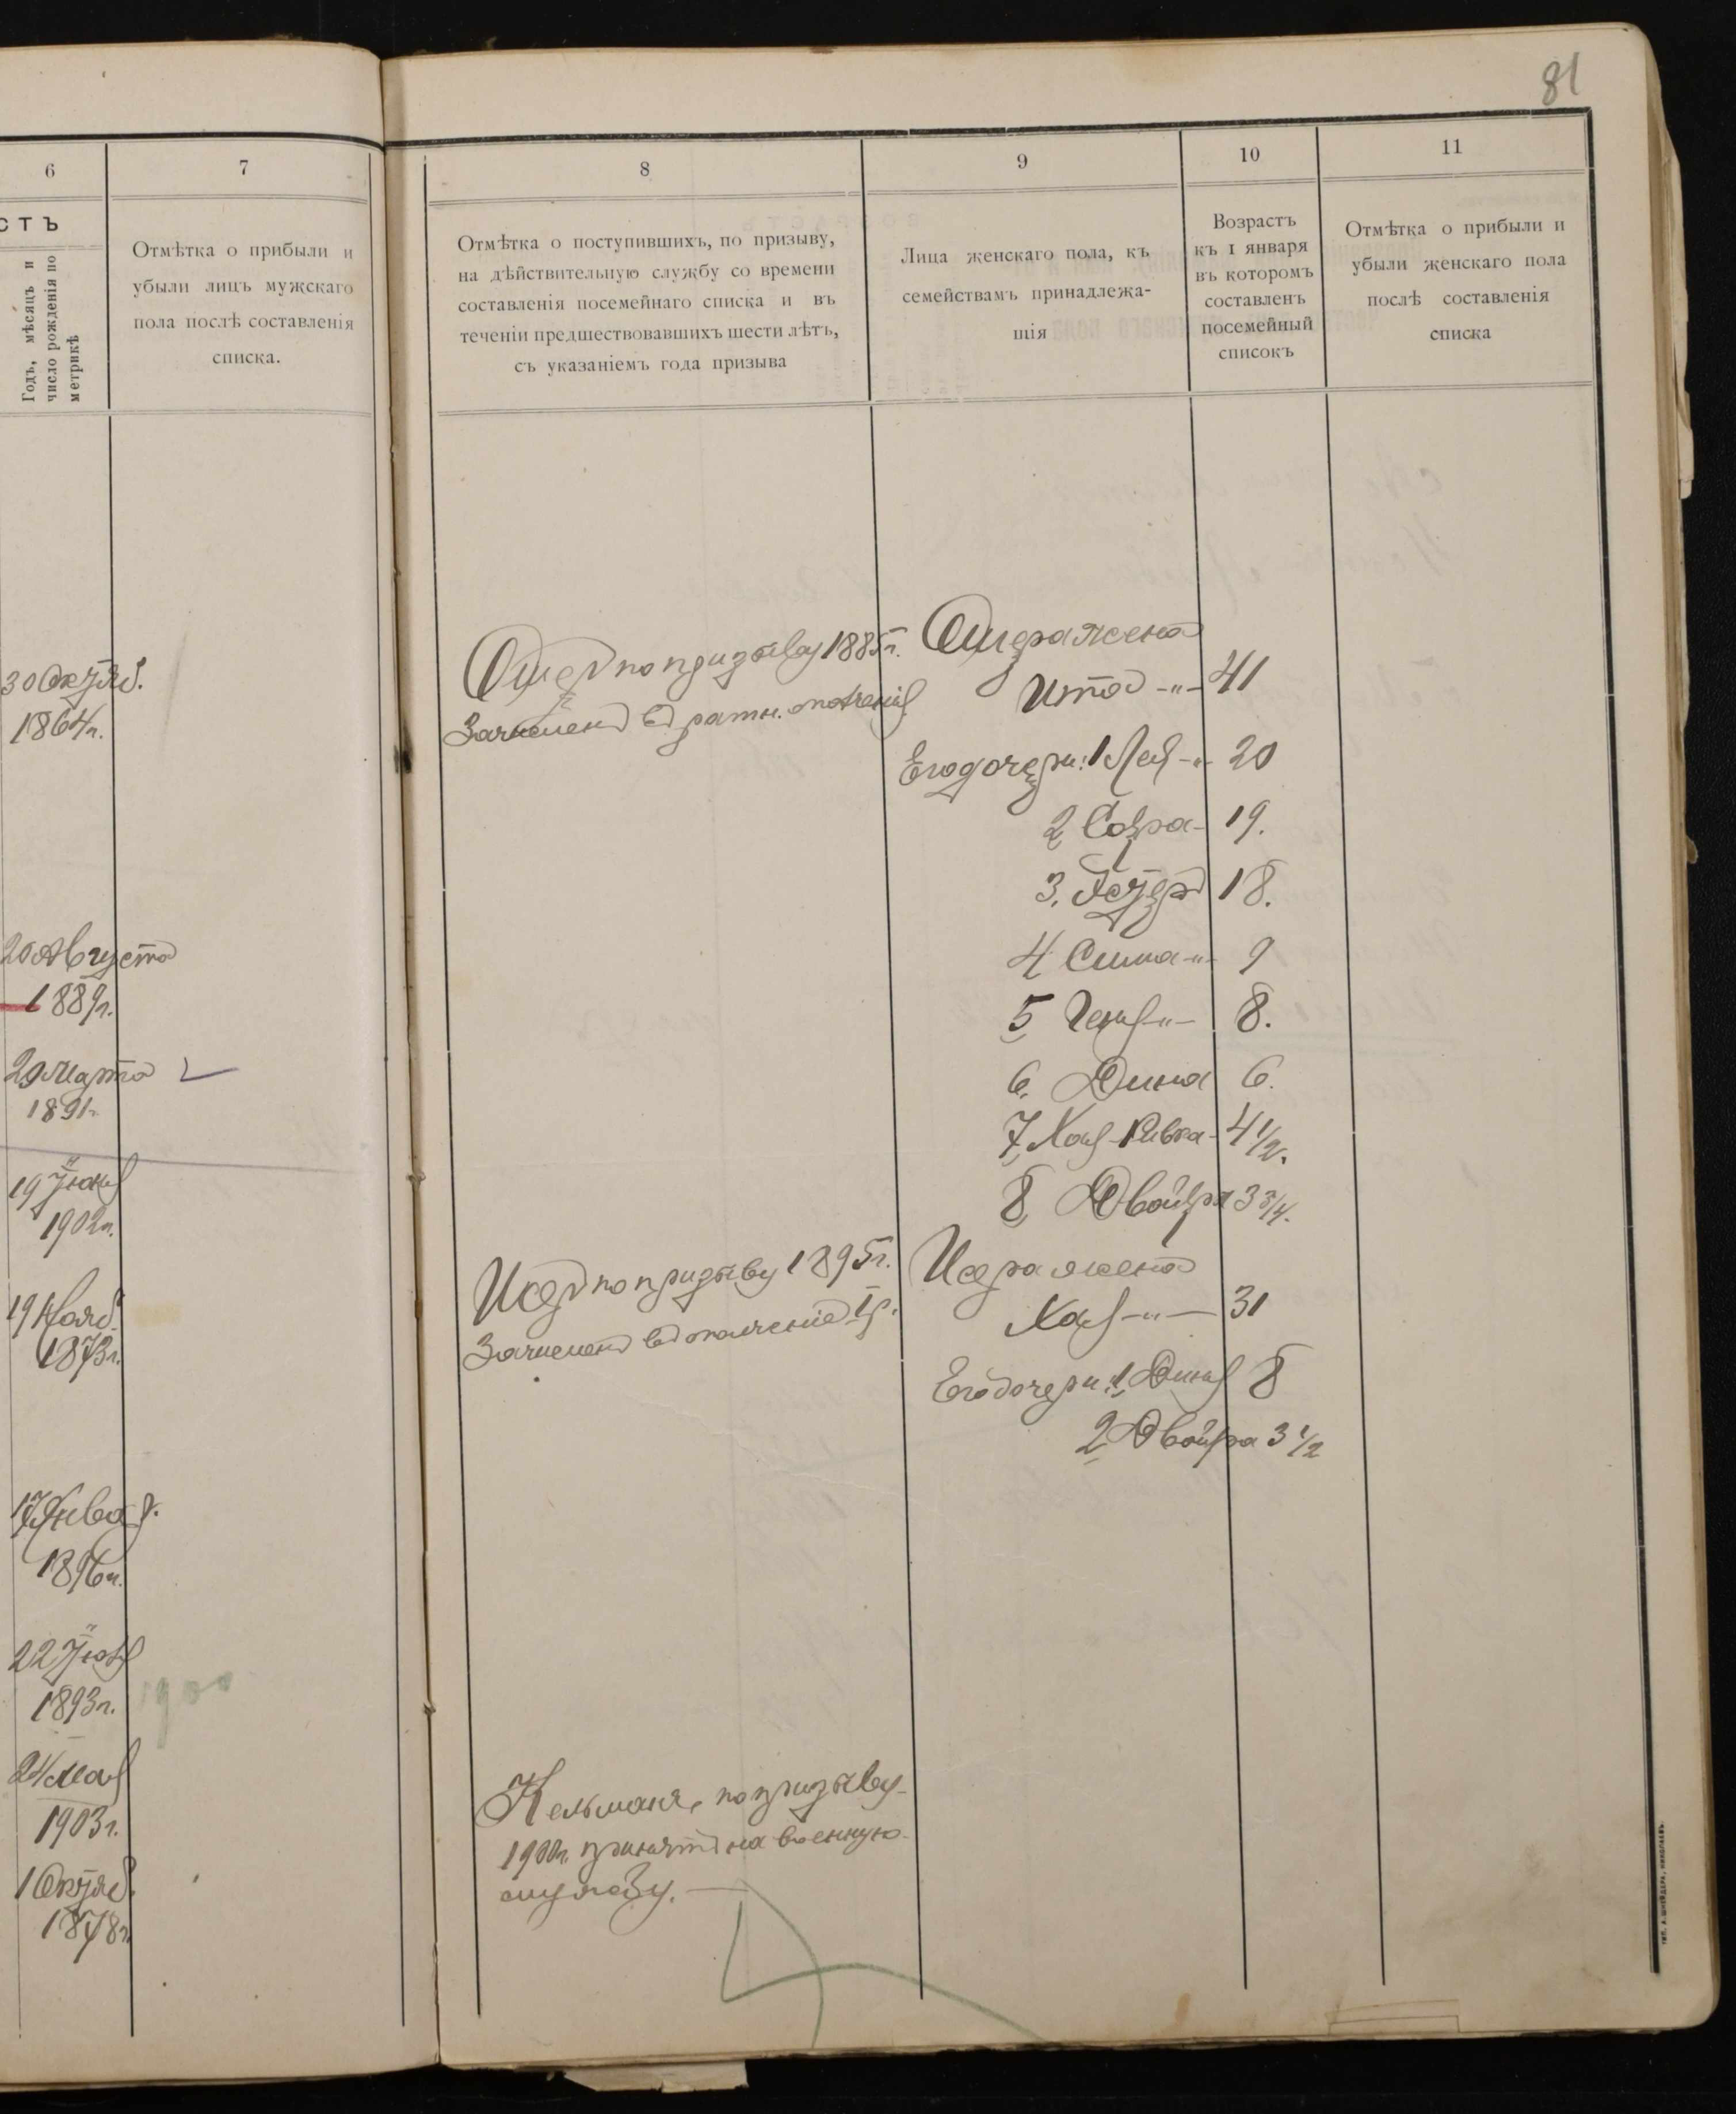 81
6
7
8
9
10
11
СТЪ
Годъ, мѣсяцъ и
число рожденія по
метрикѣ
Отмѣтка о прибыли и
убыли лицъ мужскаго
пола послѣ составленія
списка.
Отмѣтка о поступившихъ, по призыву,
на дѣйствительную службу со времени
составленія посемейнаго списка и въ
теченіи предшествовавшихъ шести лѣтъ,
съ указаніемъ года призыва
Лица женскаго пола, къ
семействамъ принадлежа-
щія
Возрастъ
къ 1 января
въ которомъ
составленъ
посемейный
списокъ
Отмѣтка о прибыли и
убыли женскаго пола
послѣ составленія
списка
30 Октяб.
1864 г.
20 Августа
1889 г.
29 Марта
1891 г.
19
1902 г.
19 Нояб.
1873 г.
17 Январ.
1896 г.
22
1893 г.
1900
24 Мая
1903 г.
1 Октяб.
1878 г.
Ошер по призыву 1885 г.
Зачислен в ратн. ополчения
Ошера жена
Ита -"- 41
Его дочери: 1 Лея -"- 20
2 Сора - 19.
3. Эстер 18.
4 Сима -"- 9
5 Геня -"- 8.
6. Дина 6.
7, Хая-Ривка - 4 1/2.
8, Двойра 3 3/4.
Исер по призыву 1895 г.
Зачислен в ополчение I р.
Исера жена
Хая -"- 31
Его дочери: 1, Диня 8
2 Двойра 3 1/2
Кельманъ, по призыву
1900 г. принятъ на военную
службу. —
ТИП. А. ШНЕЙДЕРА, НИКОЛАЕВЪ.